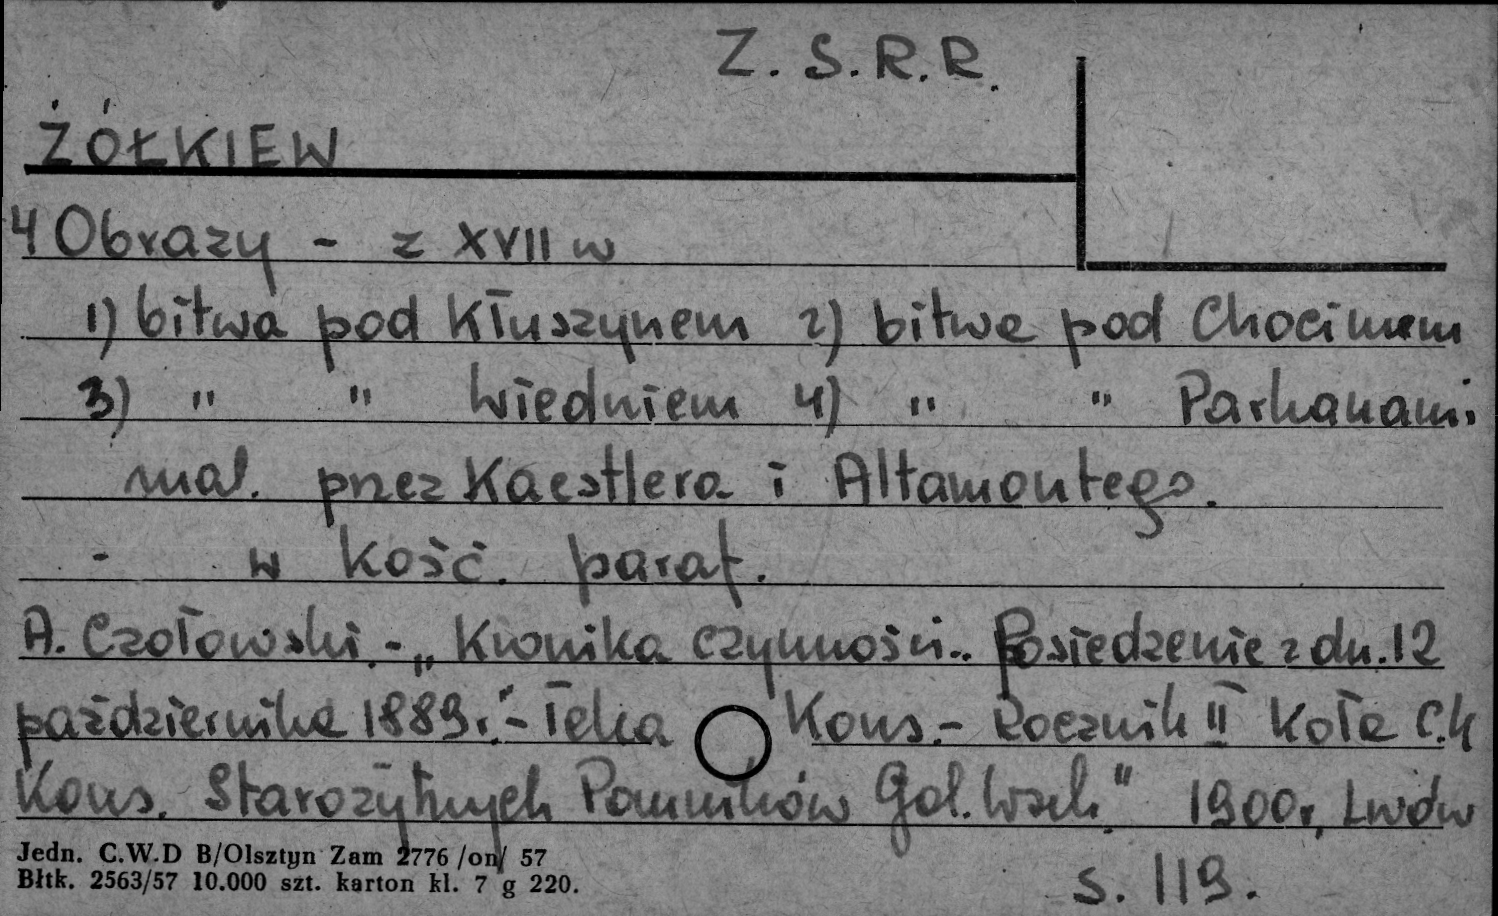 Z. S. R. R.
ŻÓŁKIEW
4 Obrazy - z XVII w
1) bitwa pod Kłuszynem 2) bitwa pod Chocimem
3) " " Wiedniem 4) " " Parkanami
mal. przez Kaestlera i Altamontego.
- w kość. paraf.
A. Czołowski.-„Kronika czynności.. Posiedzenie z dn. 12
października 1889r."- Teka Kons.- Rocznik II Koła C.K
Kons. Starożytnych Pomników Gal. Wsch." 1900r, Lwów
s. 119.
Jedn. C.W.D B/Olsztyn Zam 2776 /on/ 57
Błtk. 2563/57 10.000 szt. karton kl. 7 g 220.